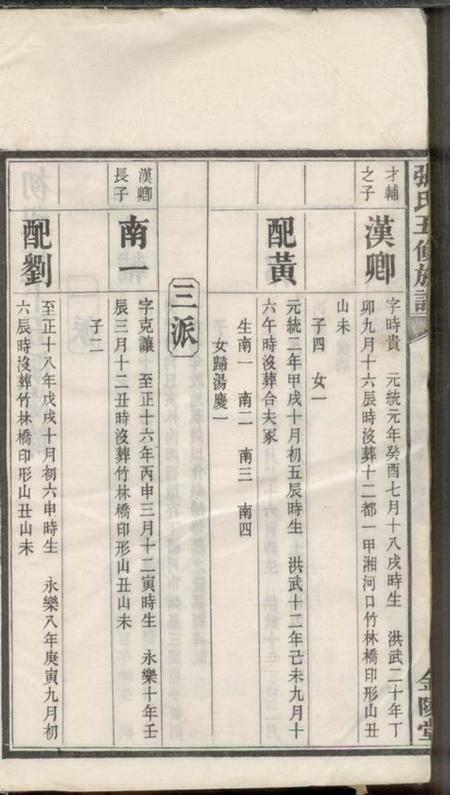 張氏五修族譜
金陵堂
才輔
之子
漢卿
字時貴 元統元年癸酉七月十八戌時生 洪武二十年丁
卯九月十六辰時沒葬十二都一甲湘河口竹林橋印形山丑
山未
子四 女一
配黃
元統二年甲戌十月初五辰時生 洪武十二年己未九月十
六午時沒葬合夫冢
生南一 南二 南三 南四
女歸湯慶一
三派
漢卿
長子
南一
字克讓 至正十六年丙申三月十二寅時生 永樂十年壬
辰三月十二丑時沒葬竹林橋印形山丑山未
子二
配劉
至正十八年戊戌十月初六申時生 永樂八年庚寅九月初
六辰時沒葬竹林橋印形山丑山未